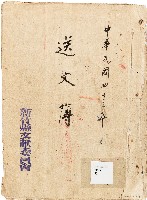 中華民國四十三年
送文簿
新竹縣文獻委員會